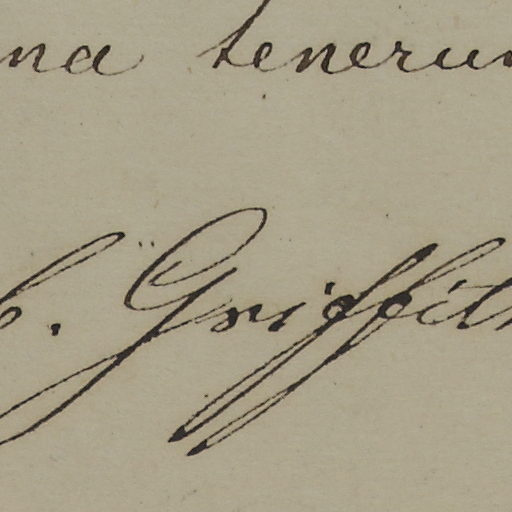 na tenerum
h. Griffith